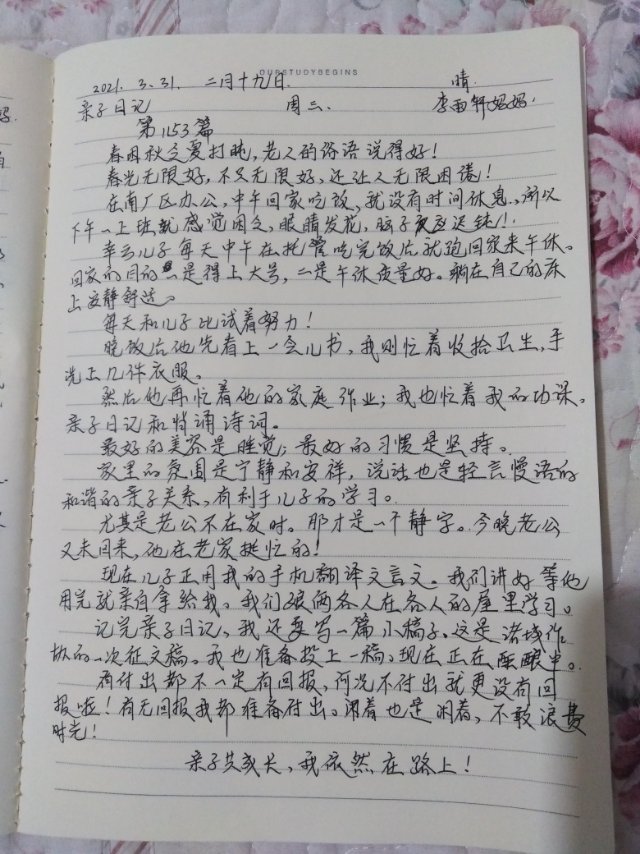 OURSTUDYBEGINS
2021. 3. 31. 二月十九日. 晴.
亲子日记 周三. 李雨轩妈妈.
第1153篇
春困秋乏夏打盹,老人的俗语说得好!
春光无限好,不只无限好,还让人无限困倦!
在南厂区办公,中午回家吃饭,就没有时间休息,所以
下午一上班就感觉困乏,眼睛发花,脑子反应迟钝!
幸亏儿子每天中午在托管吃完饭后就跑回家来午休。
回家的目的一是得上大号,二是午休质量好。躺在自己的床
上安静舒适。
每天和儿子比试着努力!
晚饭后他先看上一会儿书,我则忙着收拾卫生,手
洗上几件衣服。
然后他再忙着他的家庭作业;我也忙着我的功课。
亲子日记和背诵诗词。
最好的美容是睡觉;最好的习惯是坚持。
家里的氛围是宁静和安祥,说话也是轻言慢语的
和谐的亲子关系,有利于儿子的学习。
尤其是老公不在家时。那才是一个静字。今晚老公
又未回来,他在老家挺忙的!
现在儿子正用我的手机翻译文言文。我们讲好等他
用完就亲自拿给我。我们娘俩各人在各人的屋里学习。
记完亲子日记,我还要写一篇小稿子。这是诸城作
协的一次征文稿。我也准备投上一稿,现在正在酝酿中。
有付出都不一定有回报,何况不付出就更没有回
报啦!有无回报我都准备付出。闲着也是闲着,不敢浪费
时光!
亲子共成长,我依然在路上!